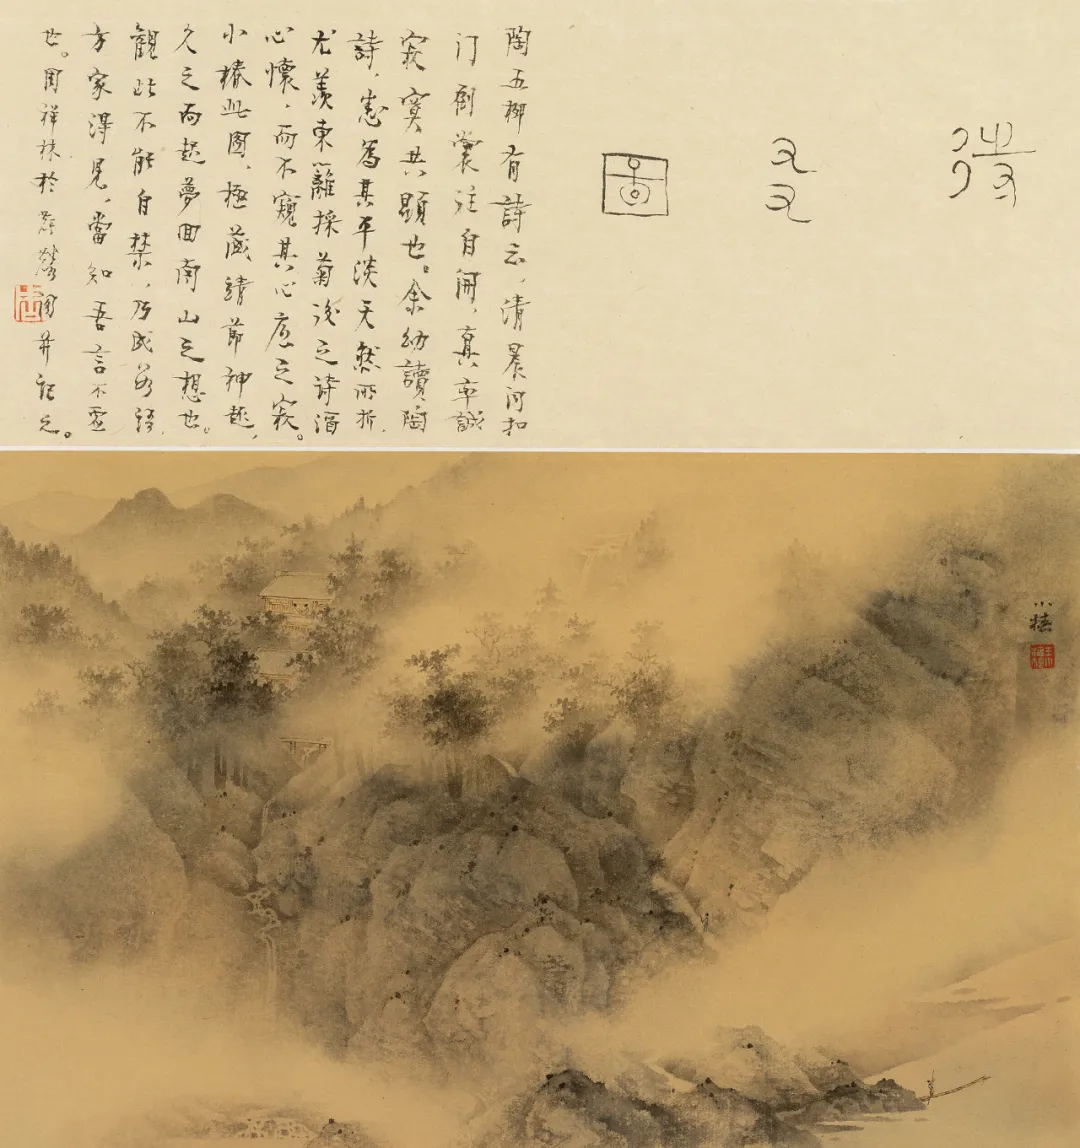 待友圖
陶五柳有詩云，清晨聞扣
门倒裳往自開，真率誠
寂寞共顯也。余幼讀陶
詩，悉為其平淡天然所折，
尤羨東籬採菊後之詩酒
心懷，而不窺其心底之寂。
小椿此圖，極盛靖節神趣，
久之而起夢回南山之想也。
觀此不能自禁，乃成語
方家得見，當知吾言不虛
也。周祥林於并記之。
小椿